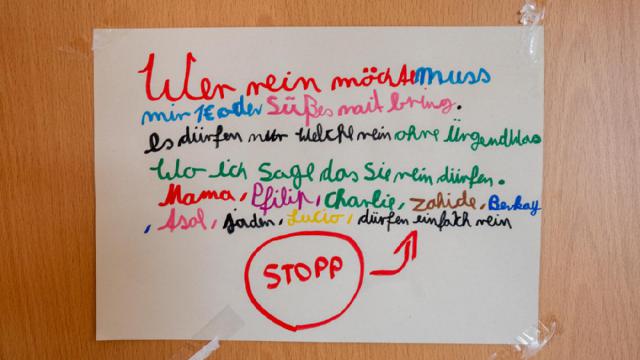 Wer rein möchte muss
mir 1€ oder Süßes mait bring.
es dürfen nur Welche rein ohne Ürgendwas
Wo ich Sage das Sie rein dürfen.
Mama, Pfilip, Charlie, zahide, Berkay
, Asal, Jaden, Lucio, dürfen einfach rein
STOPP